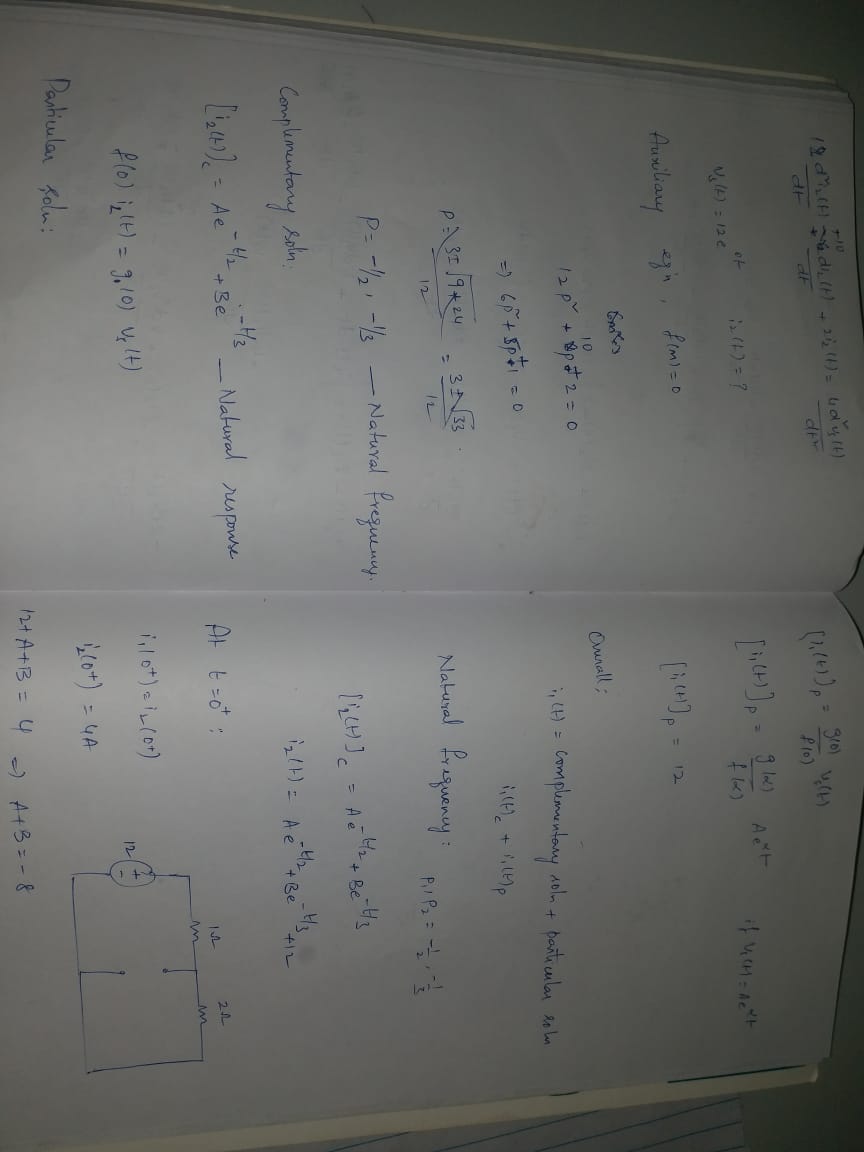 12 d²i₂(t)/dt + 10 di₂(t)/dt + 2i₂(t) = 4d²v₁(t)/dt²
vₛ(t) = 12e^0t i₂(t) = ?
Auxiliary eqn, f(m)=0
12p² + 10p + 2 = 0
=) 6p² + 5p + 1 = 0
p = 3±√9+24/12 = 3±√33/12.
P = -1/2, -1/3 — Natural frequency.
Complementary soln:
[i₂(t)]c = Ae^-t/2 + Be^-t/3 — Natural response
f(0) i₂(t) = g(0) vₛ(t)
Particular soln:
[i₁(t)]p = g(0)/f(0) vₛ(t)
[i₁(t)]p = g(α)/f(α) Ae^αt if vₛ(t) = Ae^αt
[i₁(t)]p = 12
Overall:
i₁(t) = complementary soln + particular soln
i₁(t)c + i₁(t)p
Natural frequency: p₁, p₂ = -1/2, -1/3
[i₂(t)]c = Ae^-t/2 + Be^-t/3
i₂(t) = Ae^-t/2 + Be^-t/3 + 12
At t=0⁺:
i₁(0⁺) = i₂(0⁺)
i₂(0⁺) = 4A
12 + -
1Ω
2Ω
12+A+B = 4 =) A+B = -8